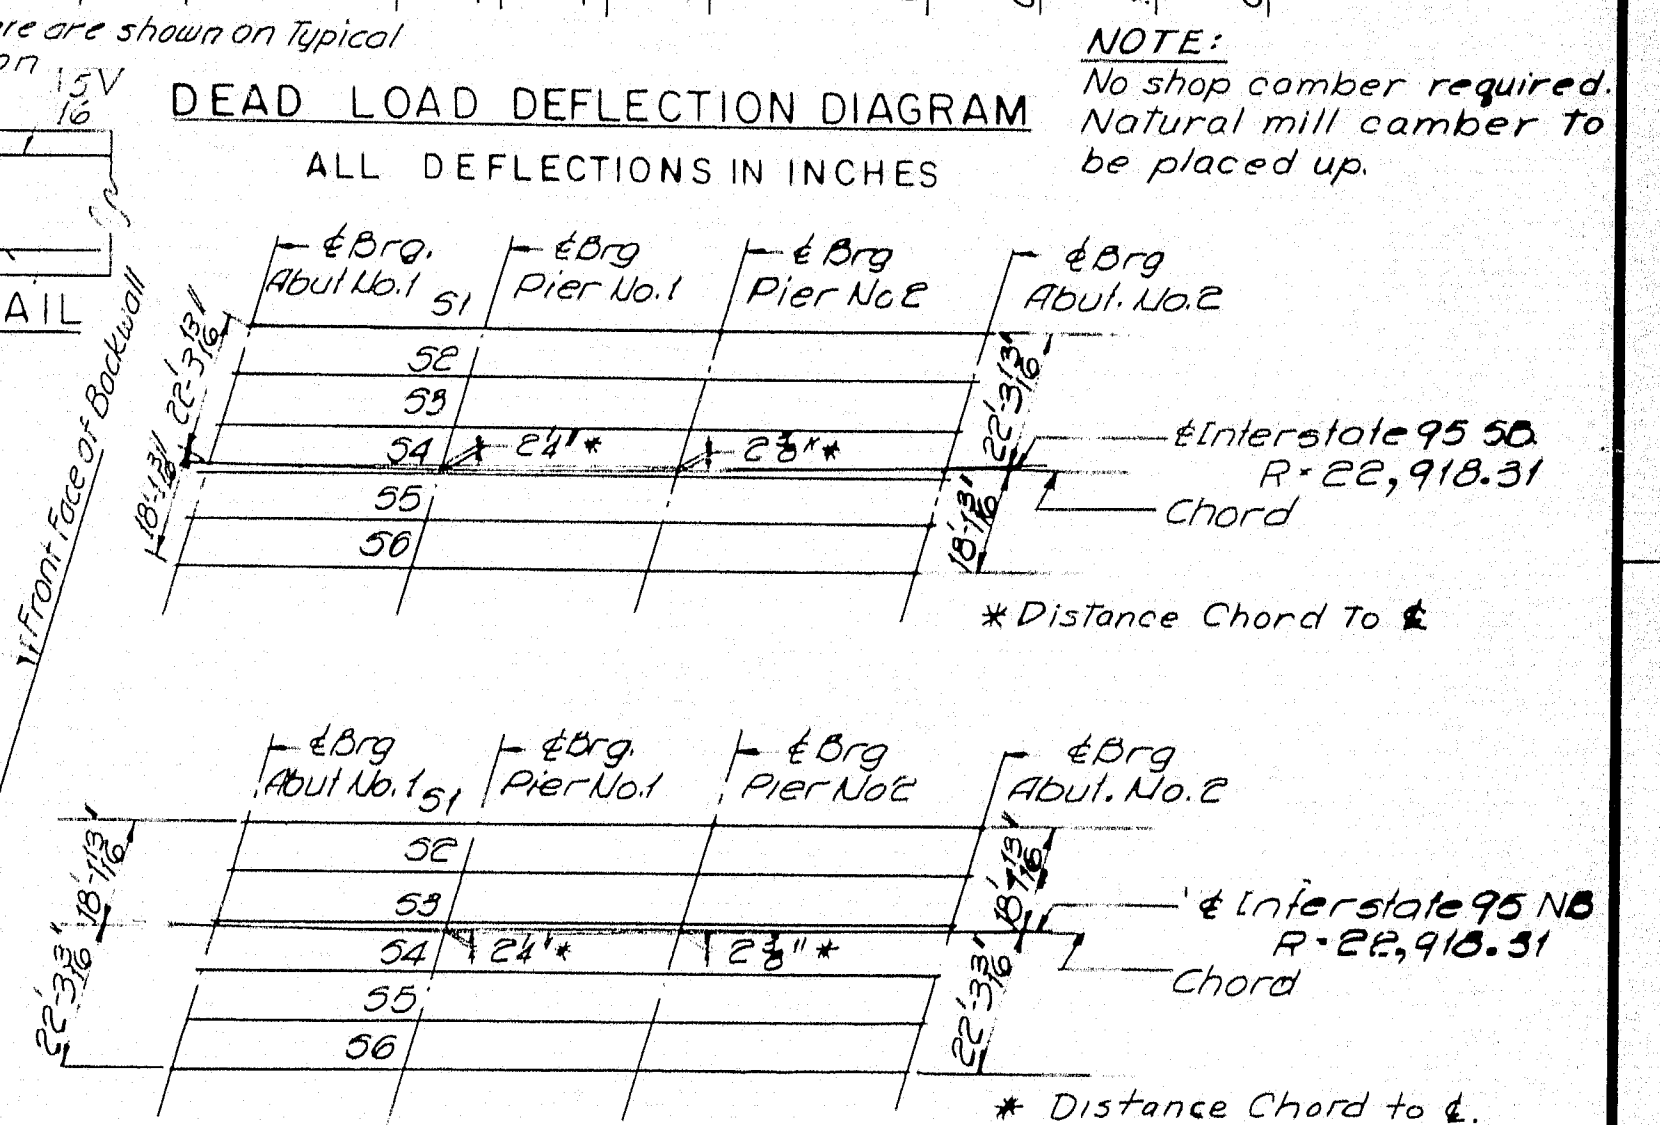 re are shown on Typical
on
15V
16
DEAD LOAD DEFLECTION DIAGRAM
ALL DEFLECTIONS IN INCHES
NOTE:
No shop camber required.
Natural mill camber to
be placed up.
AIL
Front Face of Backwall
℄ Brg.
Abut No.1
℄ Brg
Pier No.1
℄ Brg
Pier No 2
℄ Brg
Abut. No.2
S1
S2
S3
S4
S5
S6
22'-3 13/16"
18'-1 13/16"
2 1/4" *
2 3/8" *
22'-3 13/16"
18'-1 13/16"
℄ Interstate 95 SB.
R = 22,918.31
Chord
* Distance Chord To ℄
℄ Brg
Abut No.1
℄ Brg.
Pier No.1
℄ Brg
Pier No 2
℄ Brg
Abut. No.2
S1
S2
S3
S4
S5
S6
18'-1 13/16"
22'-3 13/16"
2 1/4" *
2 3/8" *
18'-1 13/16"
22'-3 13/16"
℄ Interstate 95 NB
R = 22,918.31
Chord
* Distance Chord to ℄.